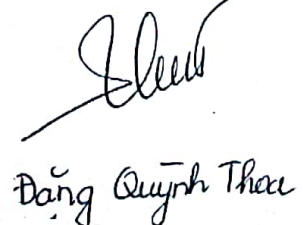 Đặng Quỳnh Thoa